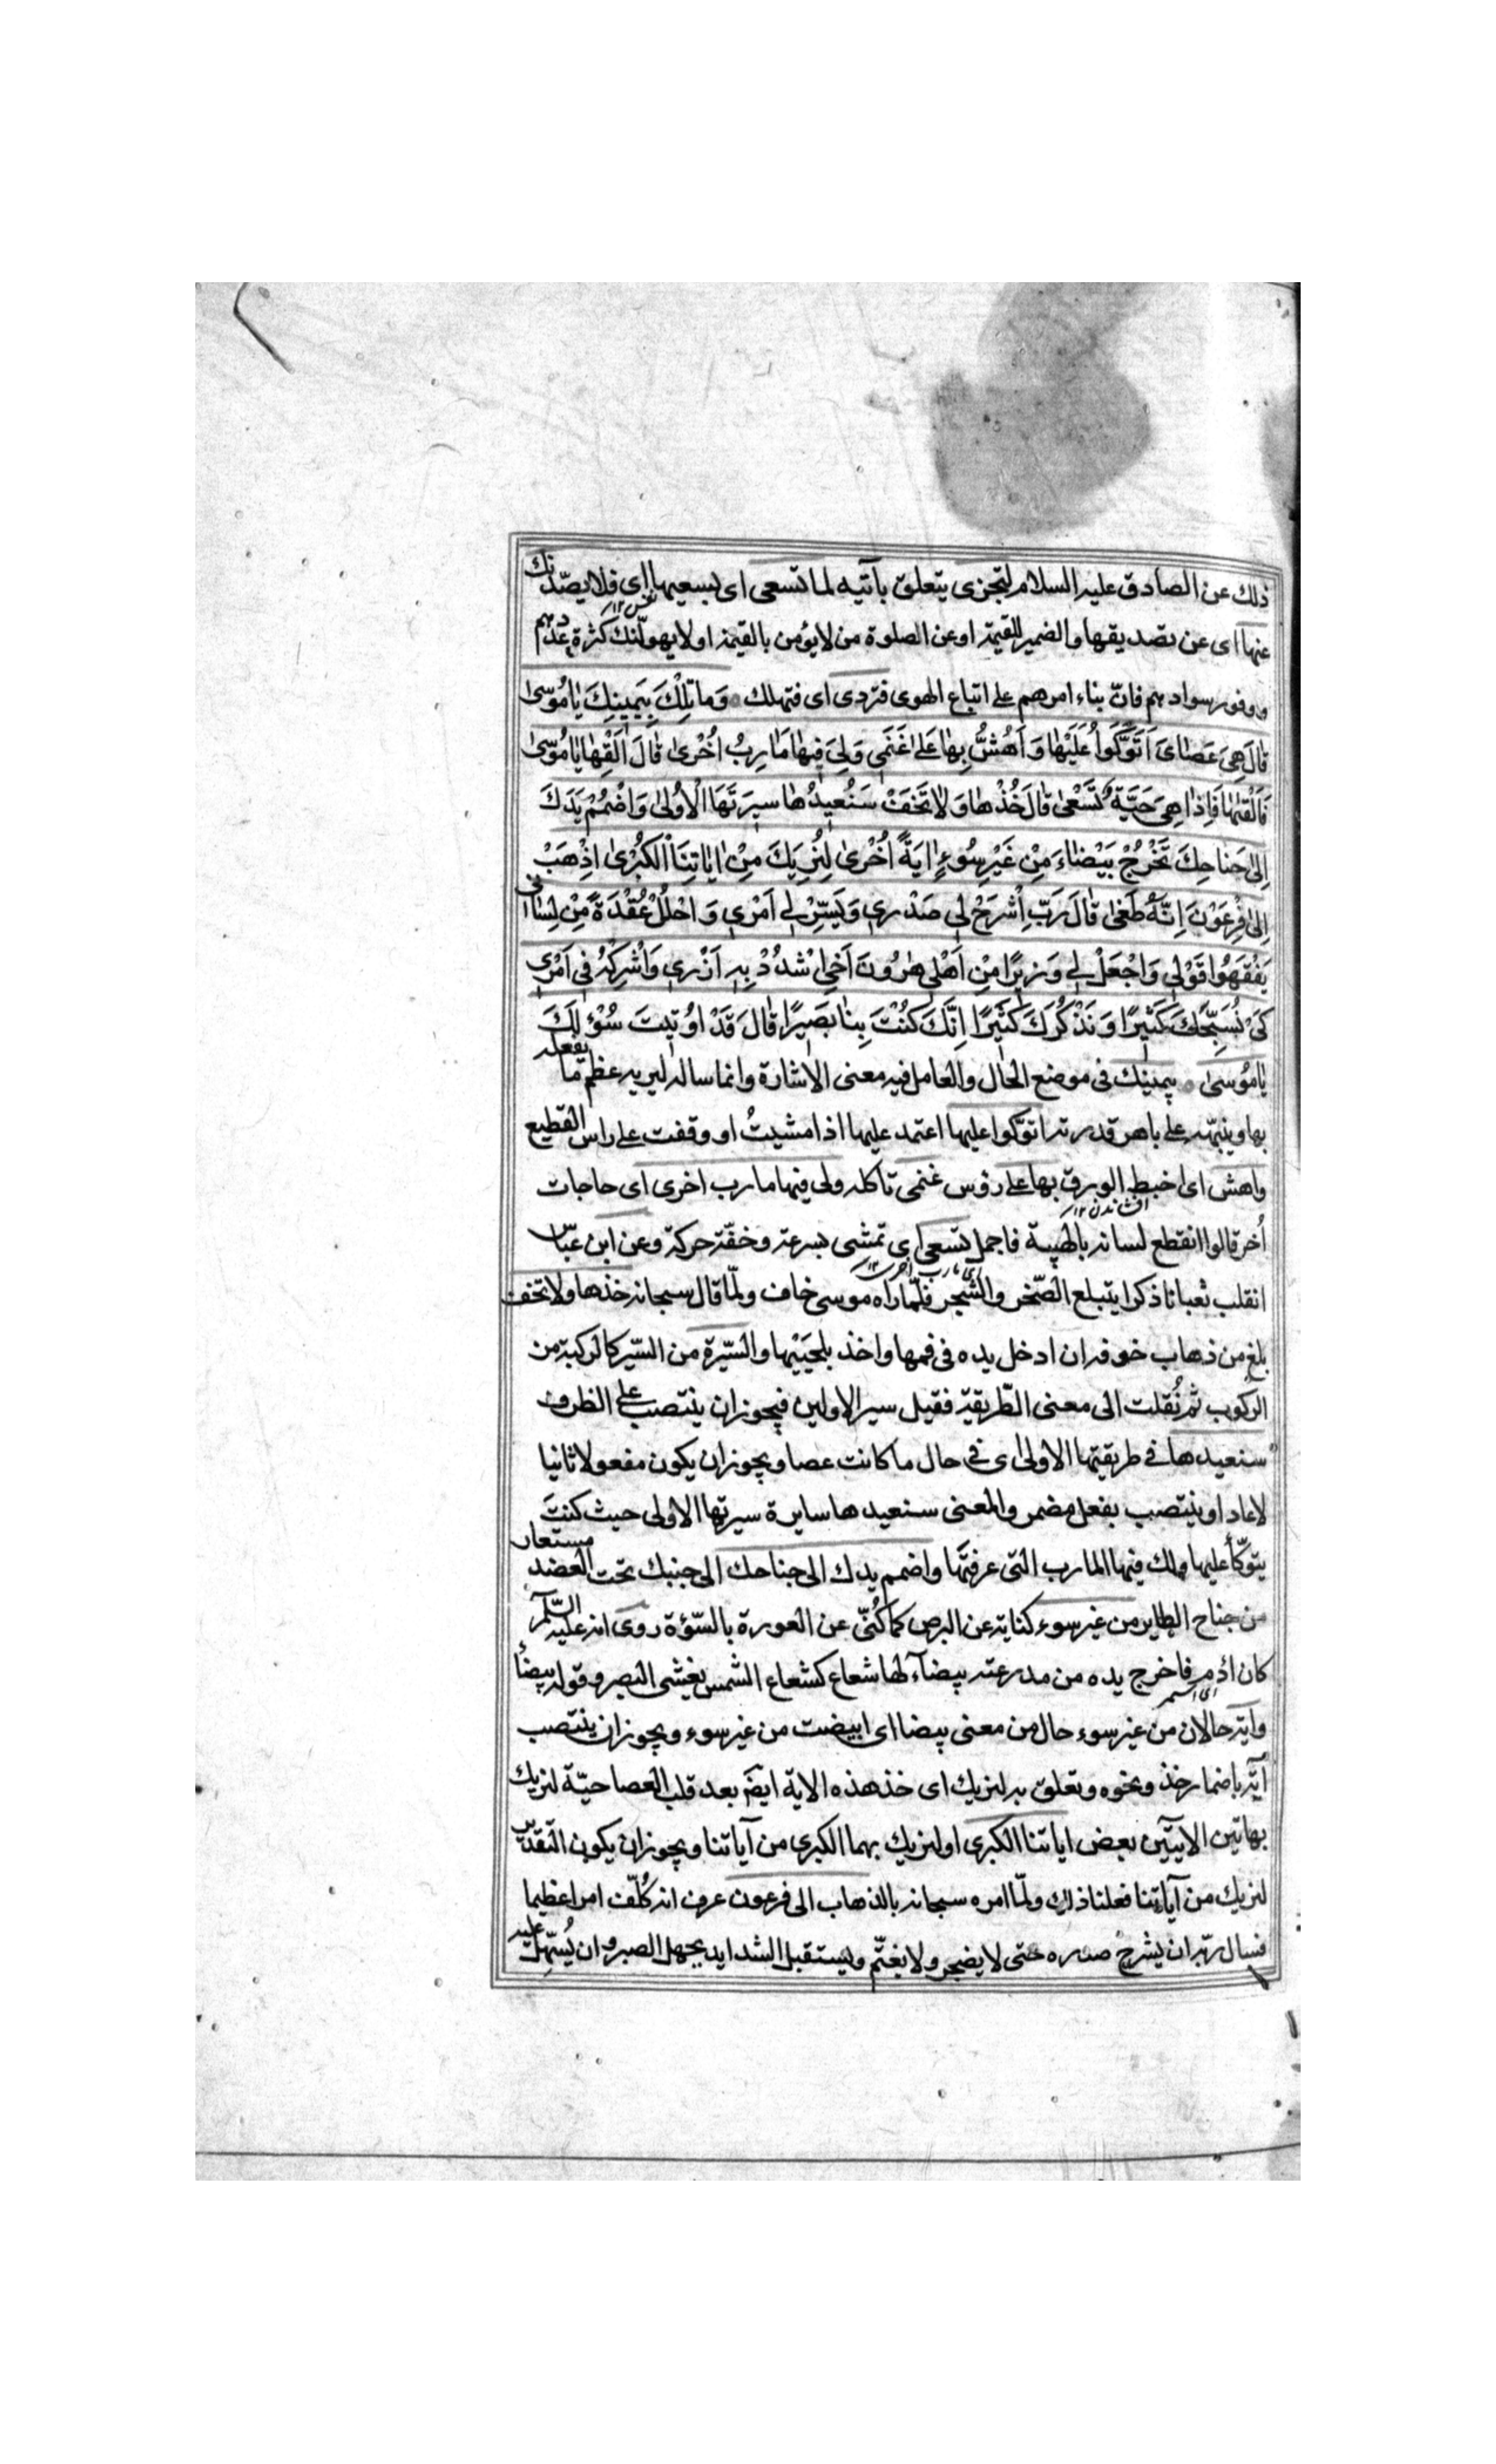 ذلك عن الصادق عليه السلام لتجزى يتعلق بآتيه لما تسعى اى لسعيها اى فلا يصدنك
عنها اى عن تصديقها والضمير للقيمة او عن الصلوة من لا يؤمن بالقيمة او لا يهولنك كثرة عددهم
ووفور سوادهم فانّ بناء امرهم على اتباع الهوى فتردى اى فتهلك وَمَا تِلْكَ بِيَمِينِكَ يَا مُوسَىٰ
قَالَ هِىَ عَصَاىَ اَتَوَكَّوُا عَلَيْهَا وَاَهُشُّ بِهَا عَلىٰ غَنَمِى وَلِىَ فِيهَا مَاٰرِبُ اُخْرىٰ قَالَ اَلْقِهَا يَا مُوسَىٰ
فَاَلْقٰيهَا فَاِذَا هِىَ حَيَّةٌ تَسْعىٰ قَالَ خُذْهَا وَلَا تَخَفْ سَنُعِيدُهَا سِيرَتَهَا الْاُولىٰ وَاضْمُمْ يَدَكَ
اِلىٰ جَنَاحِكَ تَخْرُجْ بَيْضَاءَ مِنْ غَيْرِ سُوءٍ اٰيَةً اُخْرىٰ لِنُرِيَكَ مِنْ اٰيَاتِنَا الْكُبْرىٰ اِذْهَبْ
اِلىٰ فِرْعَوْنَ اِنَّهُ طَغىٰ قَالَ رَبِّ اِشْرَحْ لِى صَدْرِى وَيَسِّرْ لِى اَمْرِى وَاحْلُلْ عُقْدَةً مِنْ لِسَانِى
يَفْقَهُوا قَوْلِى وَاجْعَلْ لِى وَزِيرًا مِنْ اَهْلِى هٰرُونَ اَخِى اشْدُدْ بِهِ اَزْرِى وَاَشْرِكْهُ فِى اَمْرِى
كَىْ نُسَبِّحَكَ كَثِيرًا وَنَذْكُرَكَ كَثِيرًا اِنَّكَ كُنْتَ بِنَا بَصِيرًا قَالَ قَدْ اُوتِيتَ سُؤْلَكَ
يَا مُوسىٰ بيمينك فى موضع الحال والعامل فيه معنى الاشارة وانما ساله ليريه عظم ما يفعله
بها وينبّهه على باهر قدرته اتوكوا عليها اعتمد عليها اذا مشيتُ او وقفت على راس القطيع
واهش اى اخبط الورق بها على رؤس غنمى تاكله ولى فيها مارب اخرى اى حاجات
اُخر قالوا انقطع لسانه بالهيبة فاجمل تسعى اى تمشى بسرعة وخفّة حركة وعن ابن عبّاس
انقلب ثعبانا ذكرا يتبلع الصّخر والشجر فلمّا راه موسى خاف ولمّا قال سبحانه خذها ولا تخف
بلغ من ذهاب خوفه ان ادخل يده فى فمها واخذ بلحييها والسّيرة من السّير كالركبة من
الركوب ثم نُقلت الى معنى الطّريقة فقيل سير الاولين فيجوز ان ينتصب على الظرف
سنعيدها فى طريقتها الاولى اى فى حال ما كانت عصا ويجوز ان يكون مفعولا ثانيا
لاعاد او ينتصب بفعل مضمر والمعنى سنعيدها سايرة سيرتها الاولى حيث كنتَ
يتوكّأ عليها ولك فيها المارب التى عرفتها واضمم يدك الى جناحك الى جنبك تحت العضد مستعار
من جناح الطاير من غير سوء كناية عن البرص كما كُنّى عن العورة بالسّؤة روى انه عليه السّلم
كان اٰدم فاخرج يده من مدرعته بيضآء لها شعاع كشعاع الشمس يغشى البصر وقوله بيضاء
واية حالان من غير سوء حال من معنى بيضا اى ابيضت من غير سوء ويجوز ان ينتصب
آية باضمار خذ ونحوه وتعلق به لنريك اى خذ هذه الاية ايضً بعد قلب العصا حيّة لنريك
بهاتين الآيتين بعض اياتنا الكبرى او لنريك بهما الكبرى من آياتنا ويجوز ان يكون التقدير
لنريك من آياتنا فعلنا ذلك ولمّا امره سبحانه بالذهاب الى فرعون عرف انه كُلّف امرا عظيما
فسال ربّه ان يشرح صدره حتى لا يضجر ولا يغتمّ ويستقبل الشدايد بجهل الصبر وان يُسهّل عليه